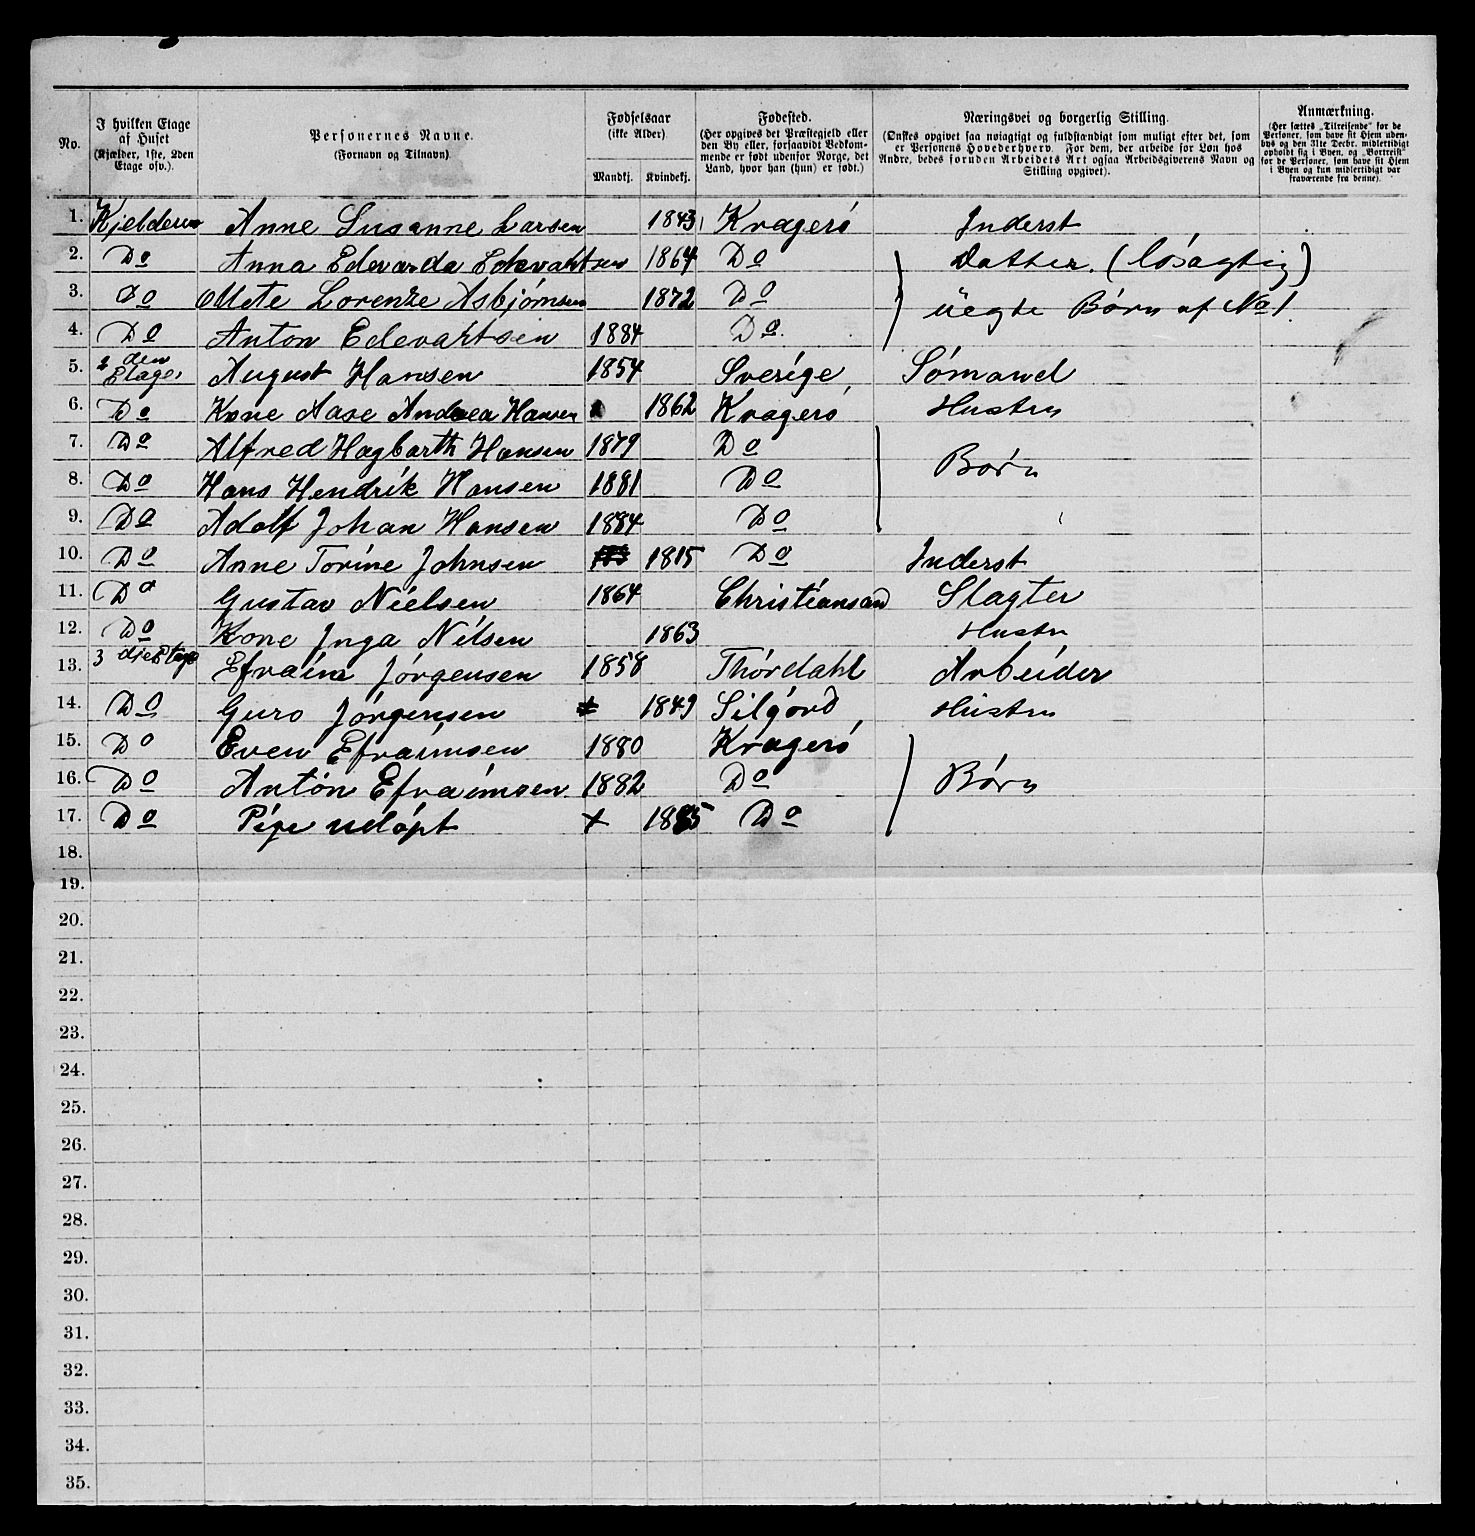 No. | I hvilken Etage af Huset (Kjælder, 1ste, 2den Etage osv.). | Personernes Navne. (Fornavn og Tilnavn) | Fødselsaar (ikke Alder). Mandkj. | Kvindekj. | Fødested. (Her opgives det Præstegjeld eller den By eller, forsaavidt Vedkommende er født udenfor Norge, det Land, hvor han (hun) er født.) | Næringsvei og borgerlig Stilling. (Ønskes opgivet saa nøiagtigt og fuldstændigt som muligt efter det, som er Personens Hovederhverv. For dem, der arbeide for Løn hos Andre, bedes foruden Arbeidets Art ogsaa Arbeidsgiverens Navn og Stilling opgivet). | Anmærkning. (Her sættes „Tilreisende" for de Personer, som have sit Hjem udenbys og den 31te Decbr. midlertidigt opholdt sig i Byen, og „Bortreist" for de Personer, som have sit Hjem i Byen og kun midlertidigt var fraværende fra denne).
1. Kjelderen Anne Susanne Larsen 1843 Kragerø Inderst
2. Do Anna Edevarda Edevahtsen 1864 Do Datter. (løsagtig)
3. Do Mete Lorenze Asbjørnsen 1872 Do üegte Børn af No 1.
4. Do Anton Edevahtsen 1884 Do.
5. 2 den Etage August Hansen 1854 Sverige Sømand
6. Do Kone Aase Andrea Hansen 1862 Kragerø Hustru
7. Do Alfred Hagbarth Hansen 1879 Do
8. Do Hans Hendrik Hansen 1881 Do Børn
9. Do Adolf Johan Hansen 1884 Do
10. Do Anne Torine Johnsen 1815 Do Inderst
11. Do Gustav Nielsen 1864 Christiansand Slagter
12. Do Kone Inga Nilsen 1863 Hustru
13. 3 dje Etage Efraim Jørgensen 1858 Thørdahl Arbeider
14. Do Guro Jørgensen 1849 Silgjord Hustru
15. Do Even Efraimsen 1880 Kragerø
16. Do Anton Efraimsen 1882 Do Børn
17. Do Pige udøpt + 1885 Do
18.
19.
20.
21.
22.
23.
24.
25.
26.
27.
28.
29.
30.
31.
32.
33.
34.
35.